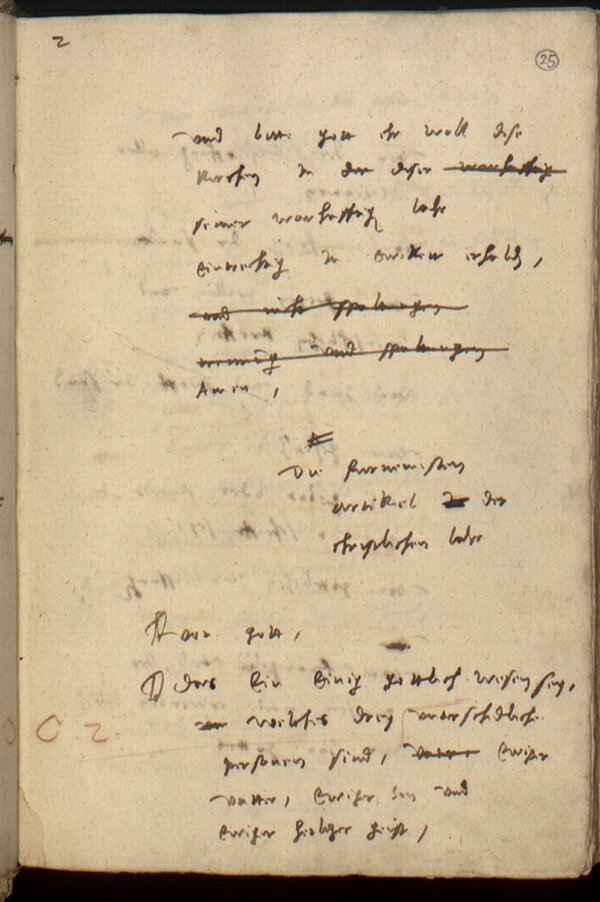 2
25
und bitte gott ehr woll dise
Kirchen in der diser warhafftig
seiner warhafftig lahr
eintrechtig in erhalden,
und nicht spaltungen
und spaltungen
Amen,
Die furnemisten
artikel der
christlichen lahr
von gott,
das Ein Einig gottlich wesen sey,
welches drey unterschidliche
personen sind, Ewiger
vatter, Ewiger son und
Ewiger heiliger geist,
C. 2.